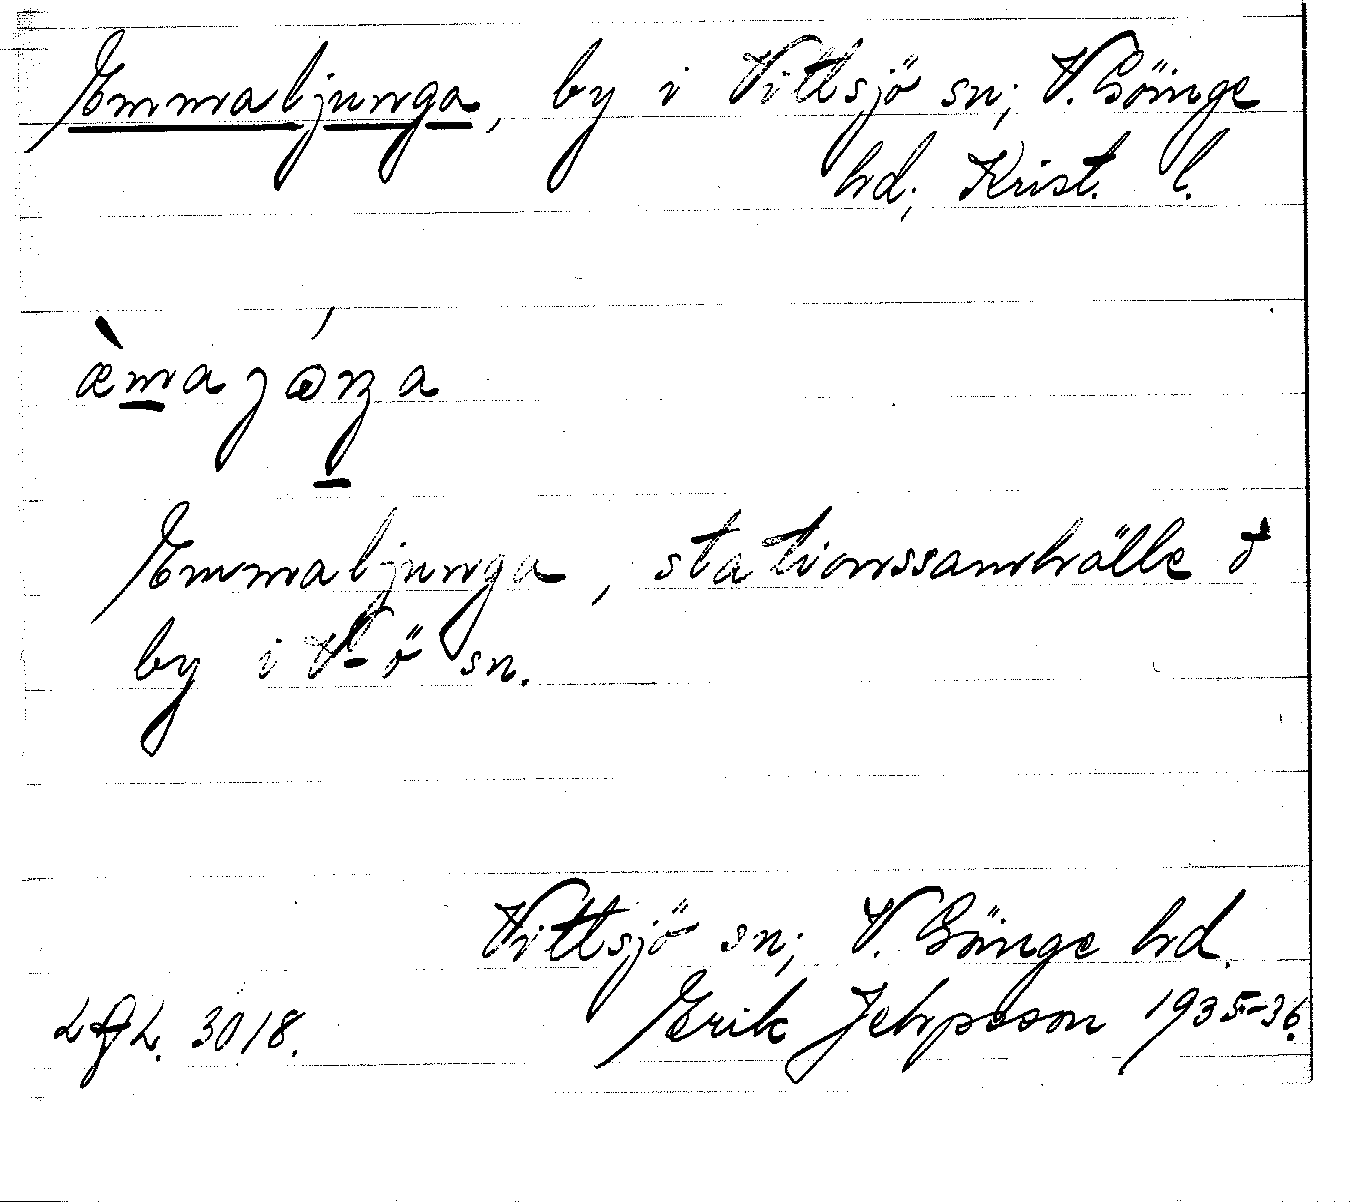 Emmaljunga, by i Vittsjö sn; V. Göinge
hd; Krist. l.
Emmaljunga, stationssamhälle o
by i V-ö sn.
Vittsjö sn; V. Göinge hd.
Erik Jeppsson 1935-36.
3018.